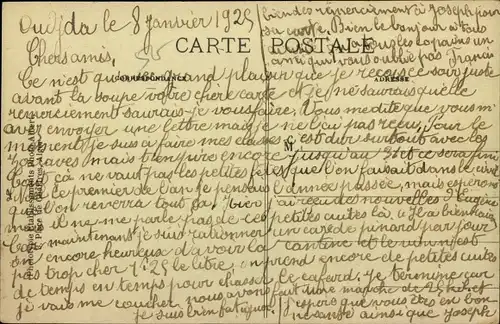 Oudjda le 8 Janvier 1925
Chers amis,
CARTE POSTALE
CORRESPONDANCE
ADRESSE
Ce n'est qu'avec grand plaisir que je reçois ce soir juste
avant la soupe votre chère carte et je ne saurais quelle
remerciement saurais-je vous faire. Vous me dite que vous m'
aver envoyer une lettre mais je ne l'ai pas reçu. Pour le
moment je suis a faire mes classes c'est dur surtout avec les
zouaves mais bien pire encore jusqu'au ce sera ainsi
ça ne vaut pas les petites fêtes que l'on faisait dans le civil
le premier de l'an je pensais l'année passée, mais espérons
que l'on reverra tout ça. hier j'ai reçu des nouvelles d'Eugène
il ne me parle pas de ces petites cuites là. J'ai bien
maintenant je suis rationner un care de pinard par jour
encore heureux d'avoir la cantine et le vin n'est
pas trop cher 1.25 le litre, on prend encore de petites cuites
de temps en temps pour chasser le cafard. Je termine car
je vais me coucher nous avons fait une marche de et
je suis bien fatigué. J'espère que vous êtes en bonne
santé ainsi que Joseph
bien des remerciement à Joseph pour
sa carte. Bien le bonjour à tous
ami qui vous oublie pas Francis